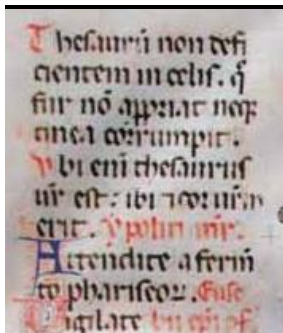 Thesaurū non defi
cientem in celis. q̄
fur nō appriat neq
tinea corrumpit.
Vbi eni thesaurus
ur̄ est: ibi ⁊ cor ur̄m
erit.
Attendite a ferm̄
to phariseoꝝ.
Uigilate